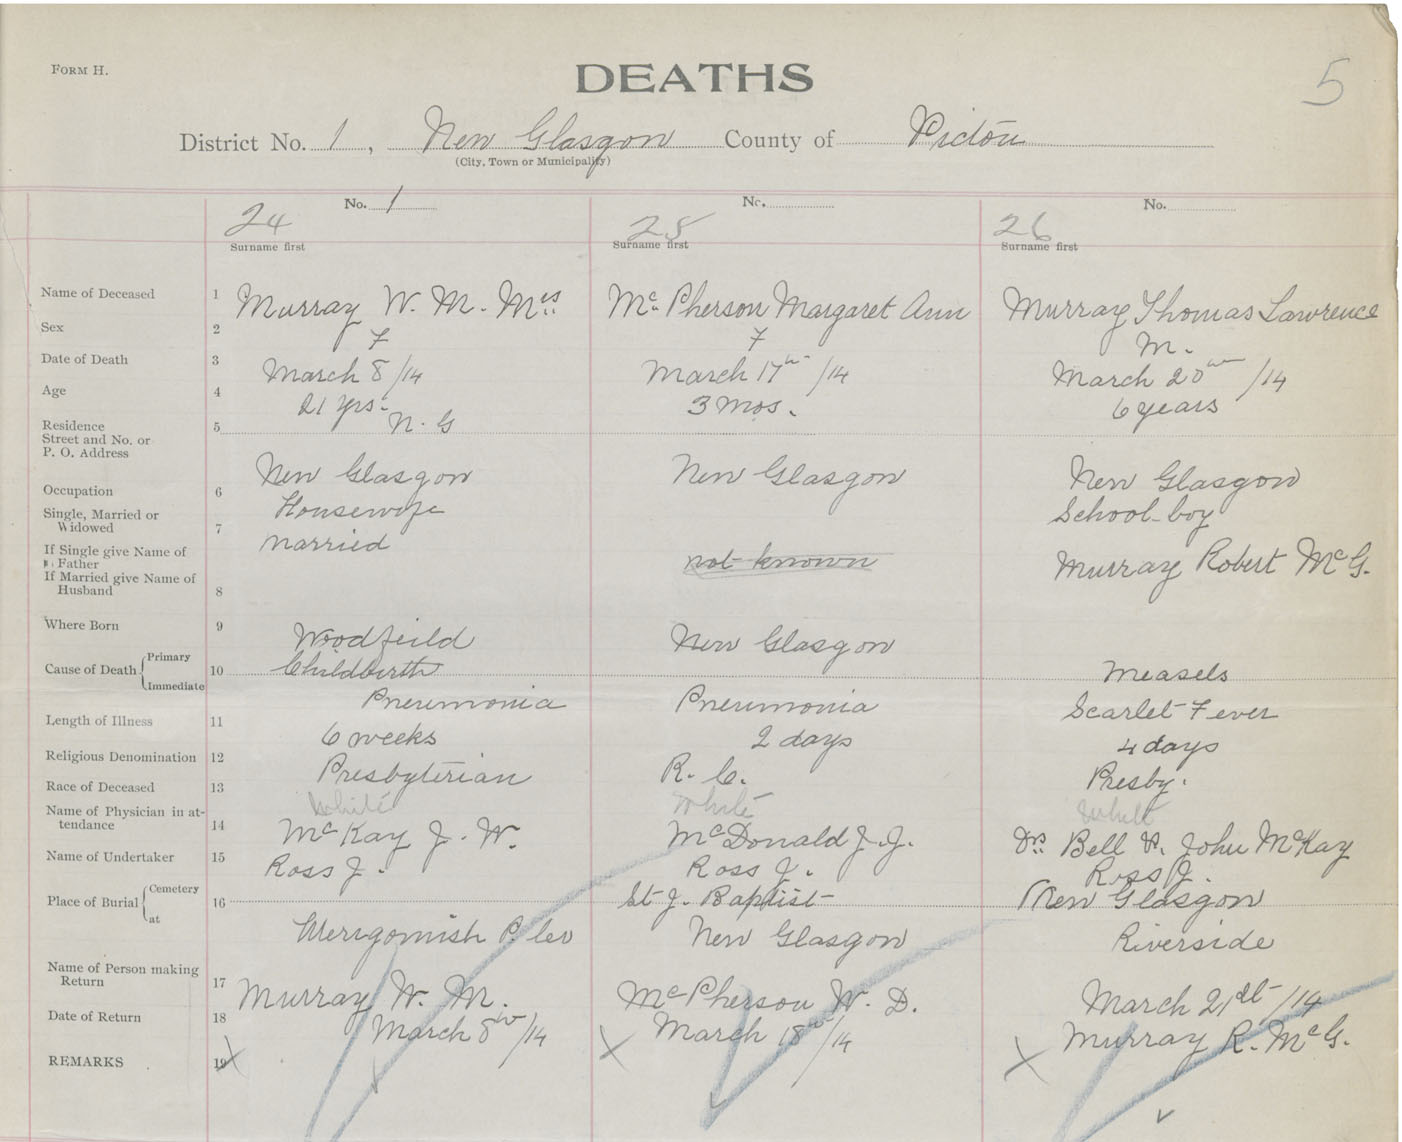 FORM H.
DEATHS
5
District No. 1, New Glasgow County of Pictou
(City, Town or Municipality)
No. 1 No. No.
24 25 26
Surname first Surname first Surname first
Name of Deceased 1 Murray W. M. Mrs McPherson Margaret Ann Murray Thomas Lawrence
Sex 2 F F M.
Date of Death 3 March 8/14 March 17th/14 March 20th/14
Age 4 21 yrs. 3 mos. 6 years
Residence 5 N. G
Street and No. or
P. O. Address New Glasgow New Glasgow New Glasgow
Occupation 6 Housewife School-boy
Single, Married or
Widowed 7 married
If Single give Name of
Father not known Murray Robert McG.
If Married give Name of
Husband 8
Where Born 9 Woodfeild New Glasgow
Cause of Death Primary 10 Childbirth Measels
Immediate Pneumonia Pneumonia Scarlet Fever
Length of Illness 11 6 weeks 2 days 4 days
Religious Denomination 12 Presbyterian R. C. Presby.
Race of Deceased 13 White White White
Name of Physician in at-
tendance 14 McKay J. W. McDonald J. J. Drs Bell & John McKay
Name of Undertaker 15 Ross J. Ross J. Ross J.
Place of Burial Cemetery 16 St J. Baptist New Glasgow
at Merigomish New Glasgow Riverside
Name of Person making
Return 17 Murray W. M. McPherson W. D. March 21st/14
Date of Return 18 March 8th/14 March 18th/14 Murray R. McG.
REMARKS 19